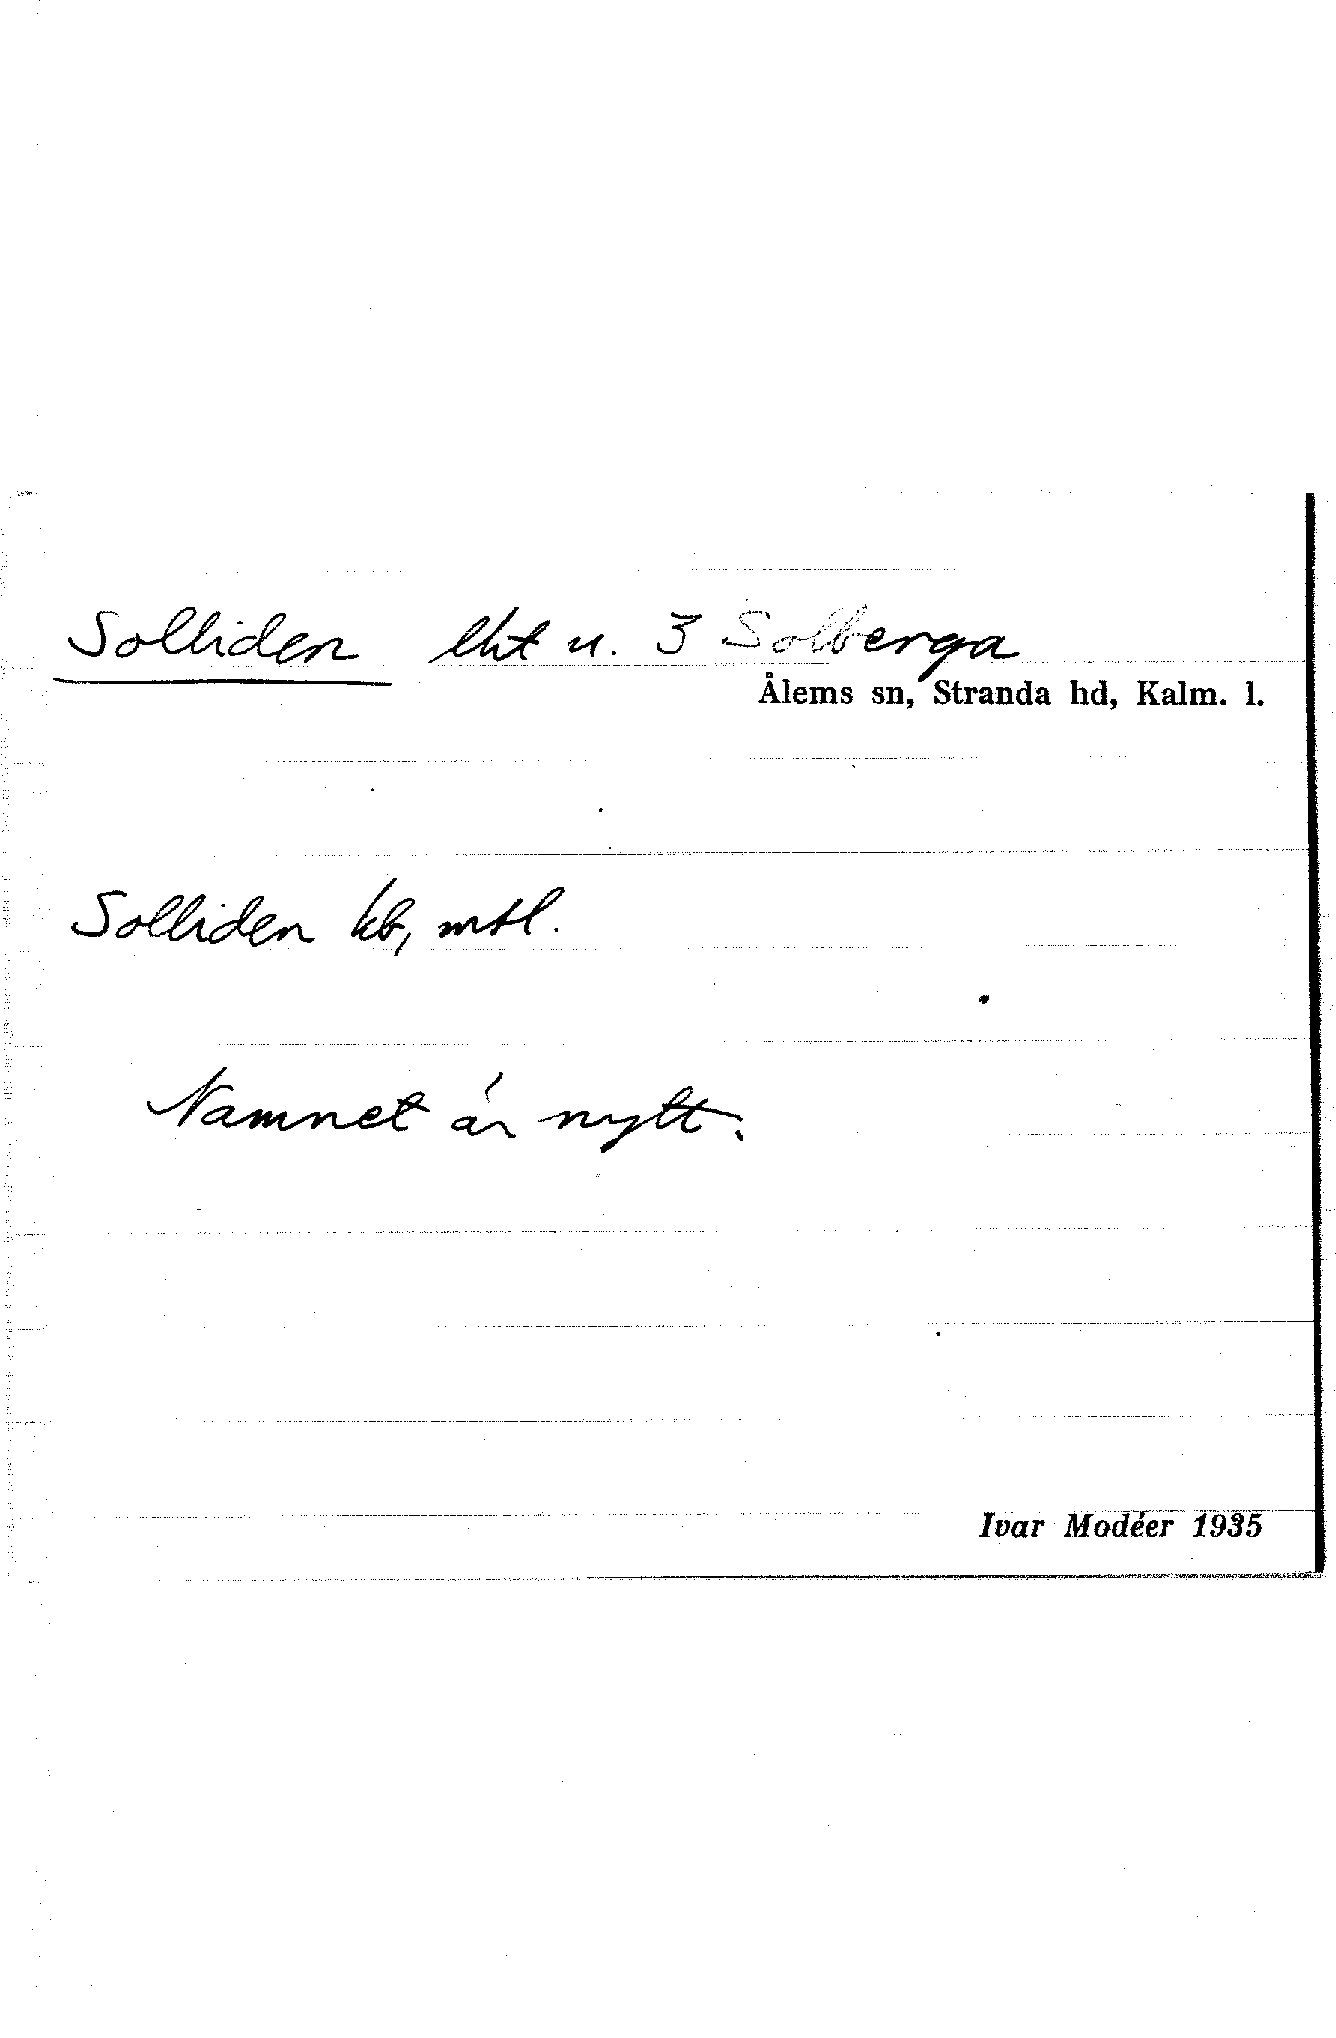 Solliden lht u. 3 Solberga
Ålems sn, Stranda hd, Kalm. l.
Solliden kb, mtl.
Namnet är nytt.
Ivar Modéer 1935